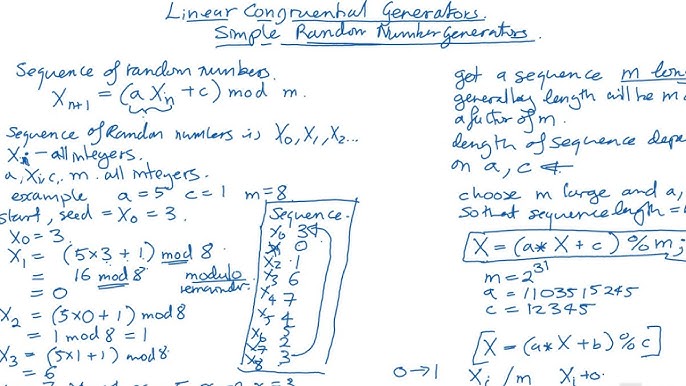 Linear Congruential Generators.
Simple Random Number Generators.
Sequence of random numbers.
X_{n+1} = (a X_n + c) mod m.
Sequence of Random numbers is X_0, X_1, X_2...
X_i - all integers.
a, X_i, c, m. all integers.
example a = 5 c = 1 m = 8
start, seed = X_0 = 3.
X_0 = 3.
X_1 = (5×3 + 1) mod 8
= 16 mod 8
= 0
modulo
remainder.
X_2 = (5×0 + 1) mod 8
= 1 mod 8 = 1
X_3 = (5×1 + 1) mod 8
= 6
Sequence.
X_0 3
X_1 0
X_2 1
X_3 6
X_4 7
X_5 4
X_6 5
X_7 2
X_8 3
get a sequence m lon
generally length will be m
a factor of m.
length of sequence depe
on a, c
choose m large and a,
so that sequence length =
X = (a* X + c) % m;
m = 2^31
a = 1103515245
c = 12345
X = (a*X + b) % c
0 → 1 X_i / m X_i + 0.